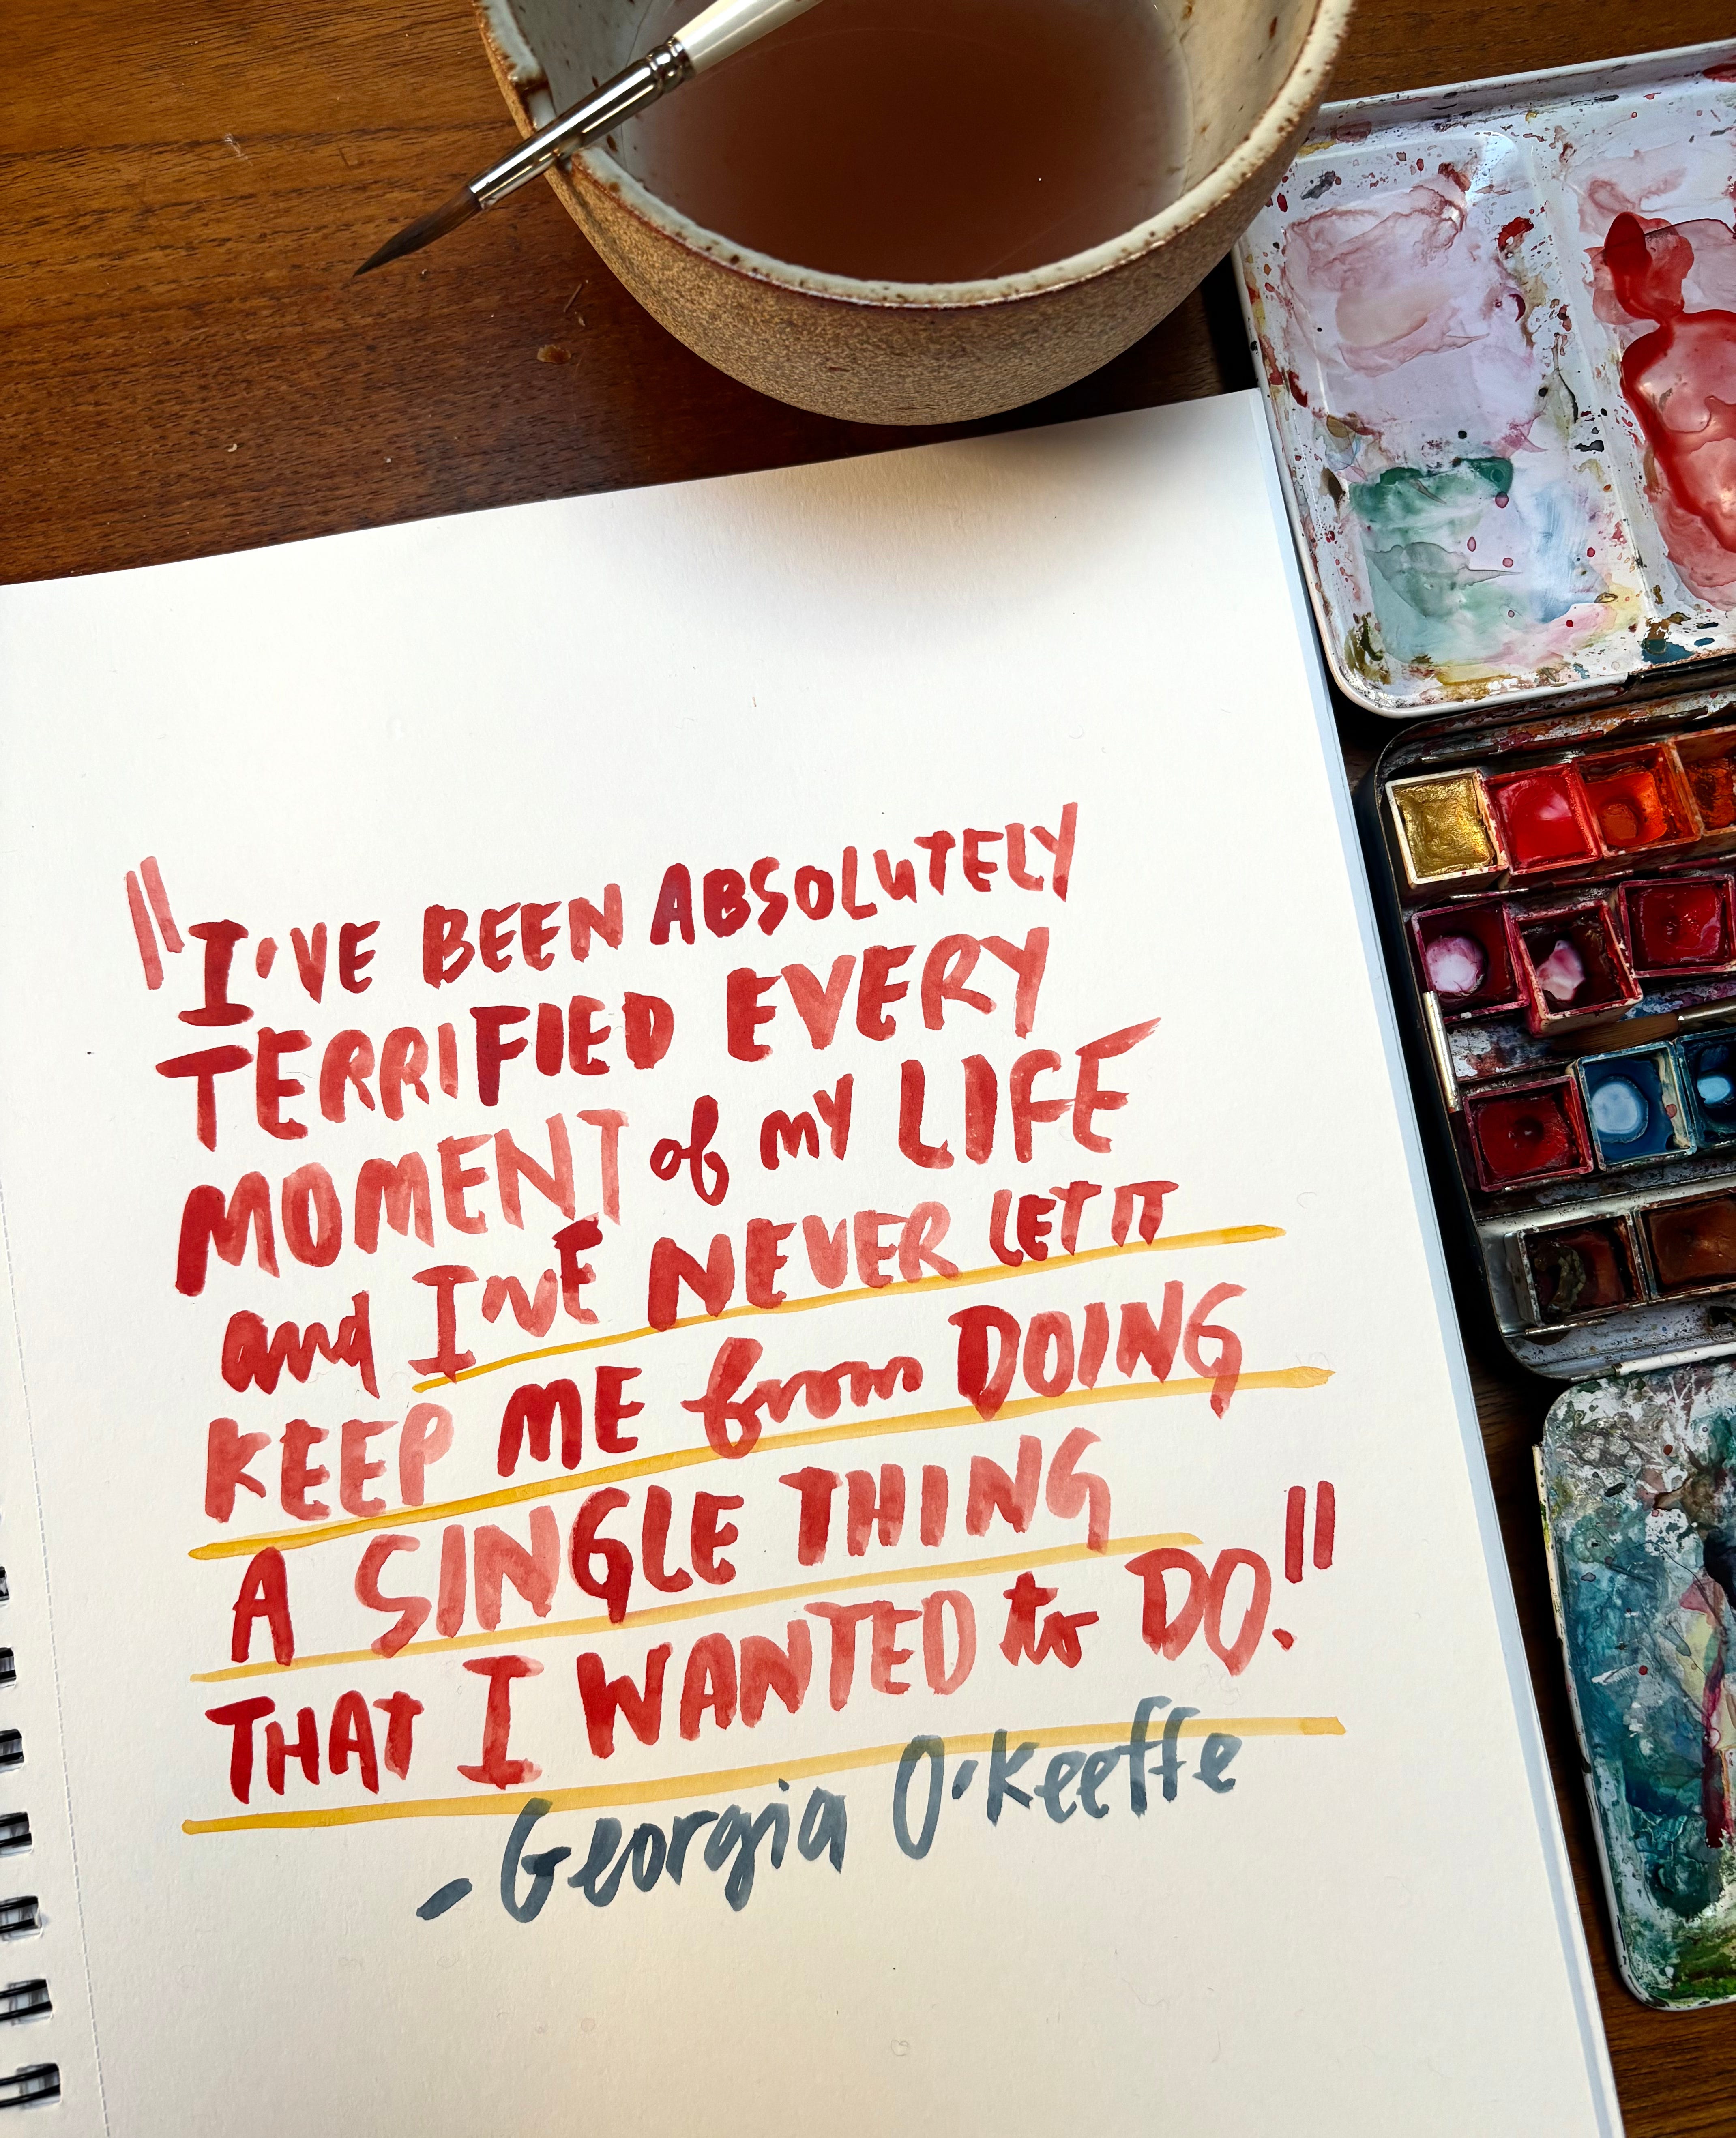 "I'VE BEEN ABSOLUTELY
TERRIFIED EVERY
MOMENT of my LIFE
and I'VE NEVER LET IT
KEEP ME from DOING
A SINGLE THING
THAT I WANTED to DO."
- Georgia O'Keeffe